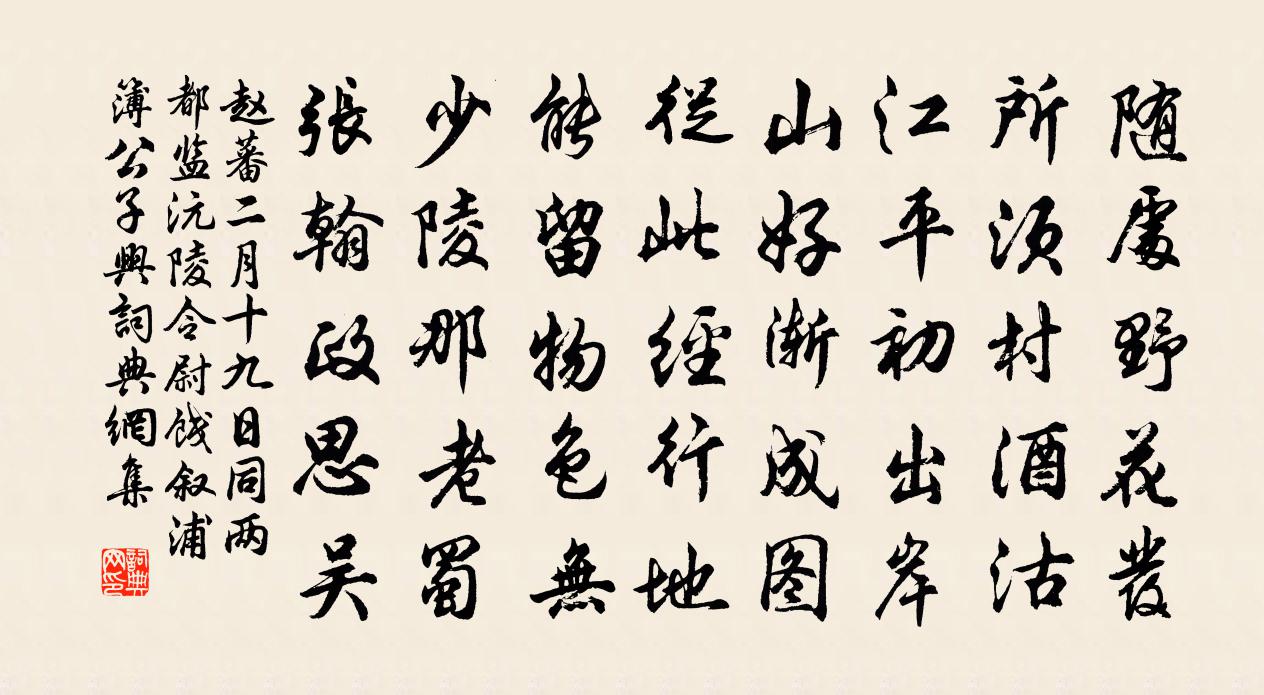 随處野花發
所須村酒沽
江平初出岸
山好漸成图
從此經行地
能留物色無
少陵那老蜀
張翰政思吴
赵蕃二月十九日同两
都监沅陵令尉餞叙浦
簿公子興詞典網集
詞典
网印